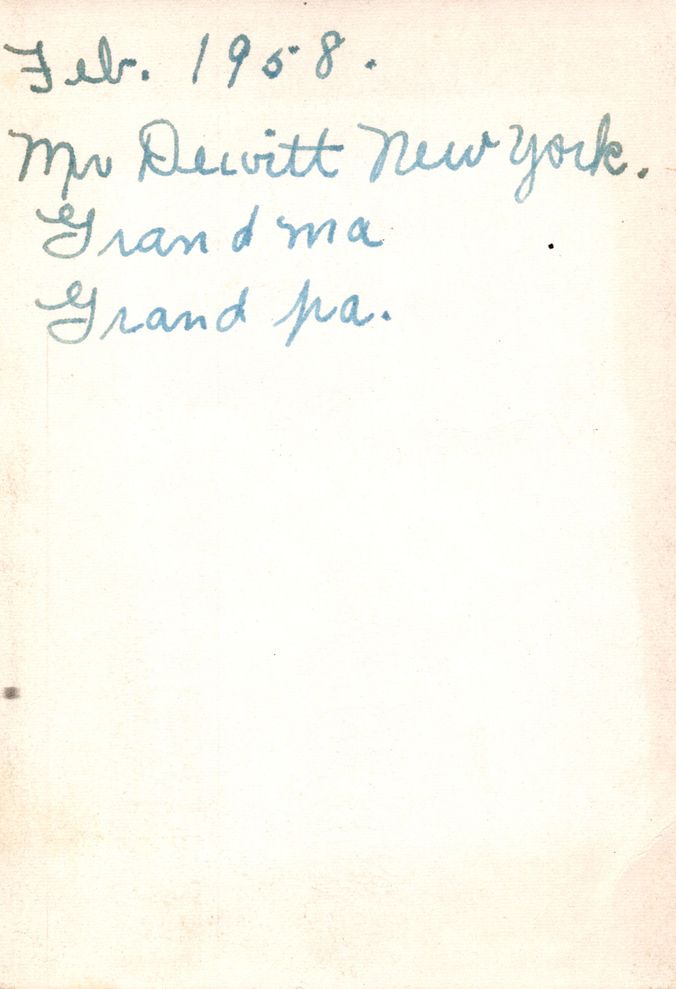 Feb. 1958.
Mr Dewitt New York.
Grand ma
Grand pa.